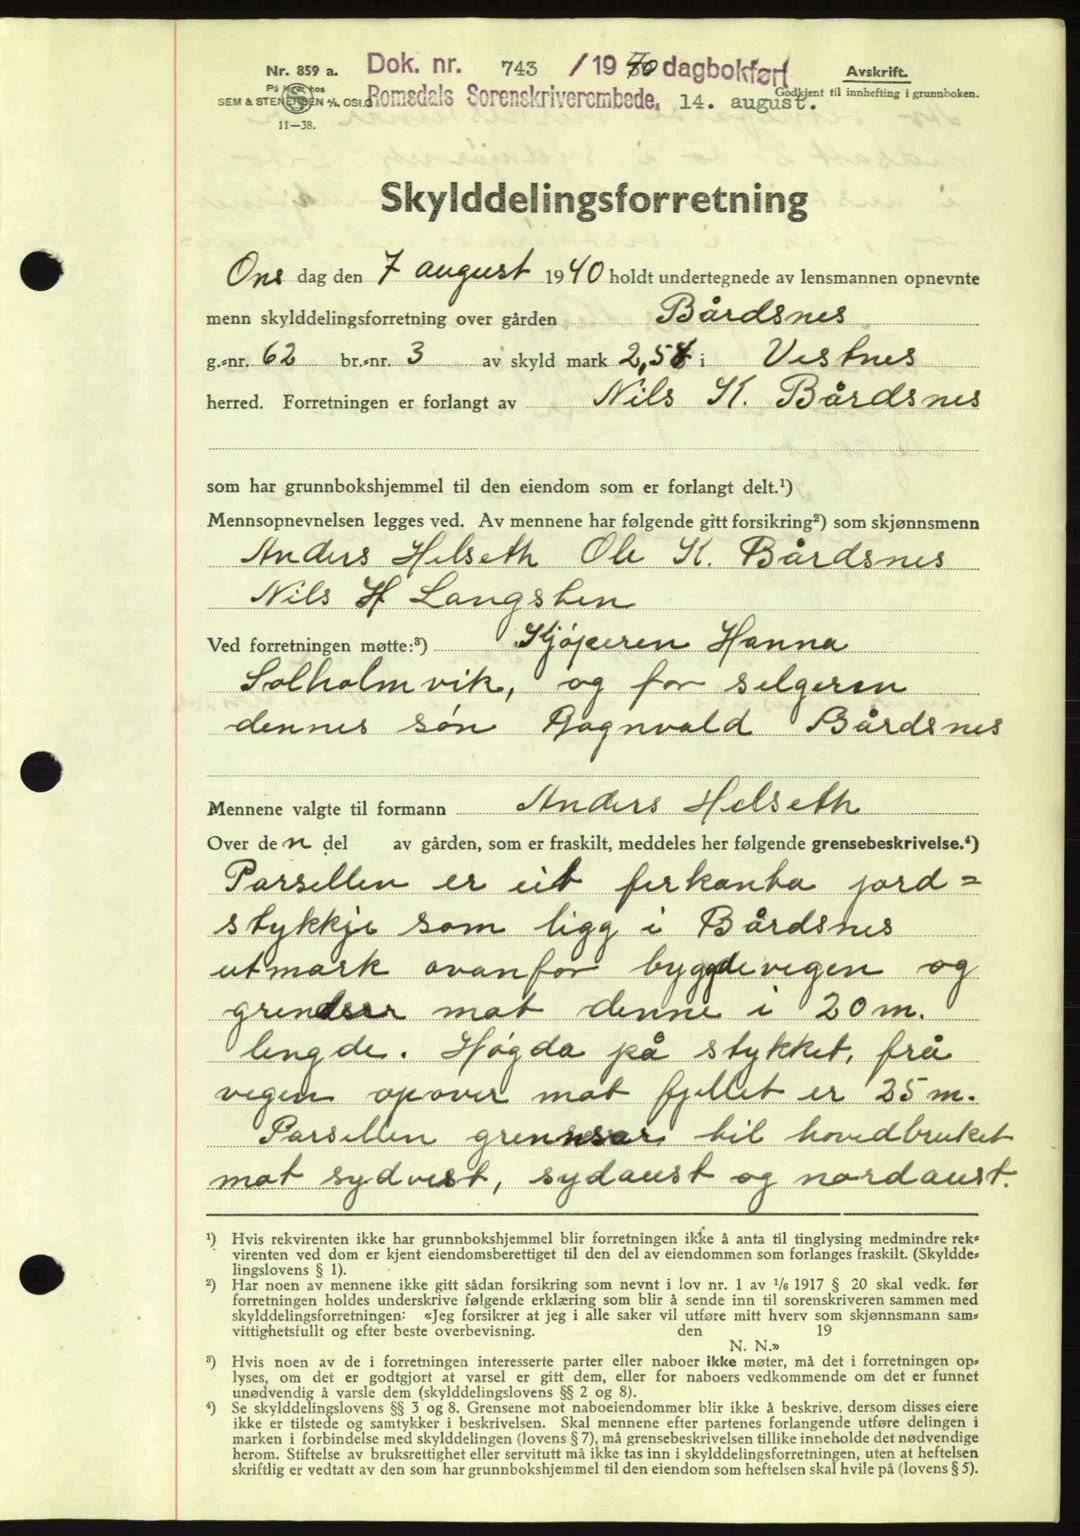 Nr. 859 a.
På lager hos
SEM & STENERSEN A/S, OSLO
11—38.
Dok. nr. 743 / 19 40 dagbokført
Romsdals Sorenskriverembede, 14. august.
Avskrift.
Godkjent til innhefting i grunnboken.
Skylddelingsforretning
Ons dag den 7 august 1940 holdt undertegnede av lensmannen opnevnte
menn skylddelingsforretning over gården Bårdsnes
g.-nr. 62 br.-nr. 3 av skyld mark 2,58 i Vestnes
herred. Forretningen er forlangt av Nils K. Bårdsnes
som har grunnbokshjemmel til den eiendom som er forlangt delt.¹)
Mennsopnevnelsen legges ved. Av mennene har følgende gitt forsikring²) som skjønnsmenn
Anders Helseth Ole K. Bårdsnes
Nils H Langsten
Ved forretningen møtte:³) Kjøperen Hanna
Solholmvik, og for selgeren
dennes søn Ragnvald Bårdsnes
Mennene valgte til formann Anders Helseth
Over de n del av gården, som er fraskilt, meddeles her følgende grensebeskrivelse.⁴)
Parsellen er eit firkanta jord=
stykkje som ligg i Bårdsnes
utmark ovanfor bygdevegen og
grenser mot denne i 20 m.
lengde. Høgda på stykket, frå
vegen opover mot fjellet er 25 m.
Parsellen grensar til hovedbruket
mot sydvest, sydaust og nordaust.
¹) Hvis rekvirenten ikke har grunnbokshjemmel blir forretningen ikke å anta til tinglysing medmindre rek-
virenten ved dom er kjent eiendomsberettiget til den del av eiendommen som forlanges fraskilt. (Skyldde-
lingslovens § 1).
²) Har noen av mennene ikke gitt sådan forsikring som nevnt i lov nr. 1 av 1/6 1917 § 20 skal vedk. før
forretningen holdes underskrive følgende erklæring som blir å sende inn til sorenskriveren sammen med
skylddelingsforretningen: «Jeg forsikrer at jeg i alle saker vil utføre mitt hverv som skjønnsmann sam-
vittighetsfullt og efter beste overbevisning. den 19
N. N.»
³) Hvis noen av de i forretningen interesserte parter eller naboer ikke møter, må det i forretningen op-
lyses, om det er godtgjort at varsel er gitt dem, eller for naboers vedkommende om det er funnet
unødvendig å varsle dem (skylddelingslovens §§ 2 og 8).
⁴) Se skylddelingslovens §§ 3 og 8. Grensene mot naboeiendommer blir ikke å beskrive, dersom disses eiere
ikke er tilstede og samtykker i beskrivelsen. Skal mennene efter partenes forlangende utføre delingen i
marken i forbindelse med skylddelingen (lovens § 7), må grensebeskrivelsen tillike inneholde det nødvendige
herom. Stiftelse av bruksrettighet eller servitutt må ikke tas inn i skylddelingsforretningen, uten at heftelsen
skriftlig er vedtatt av den som har grunnbokshjemmel til den eiendom som heftelsen skal hvile på (lovens § 5).